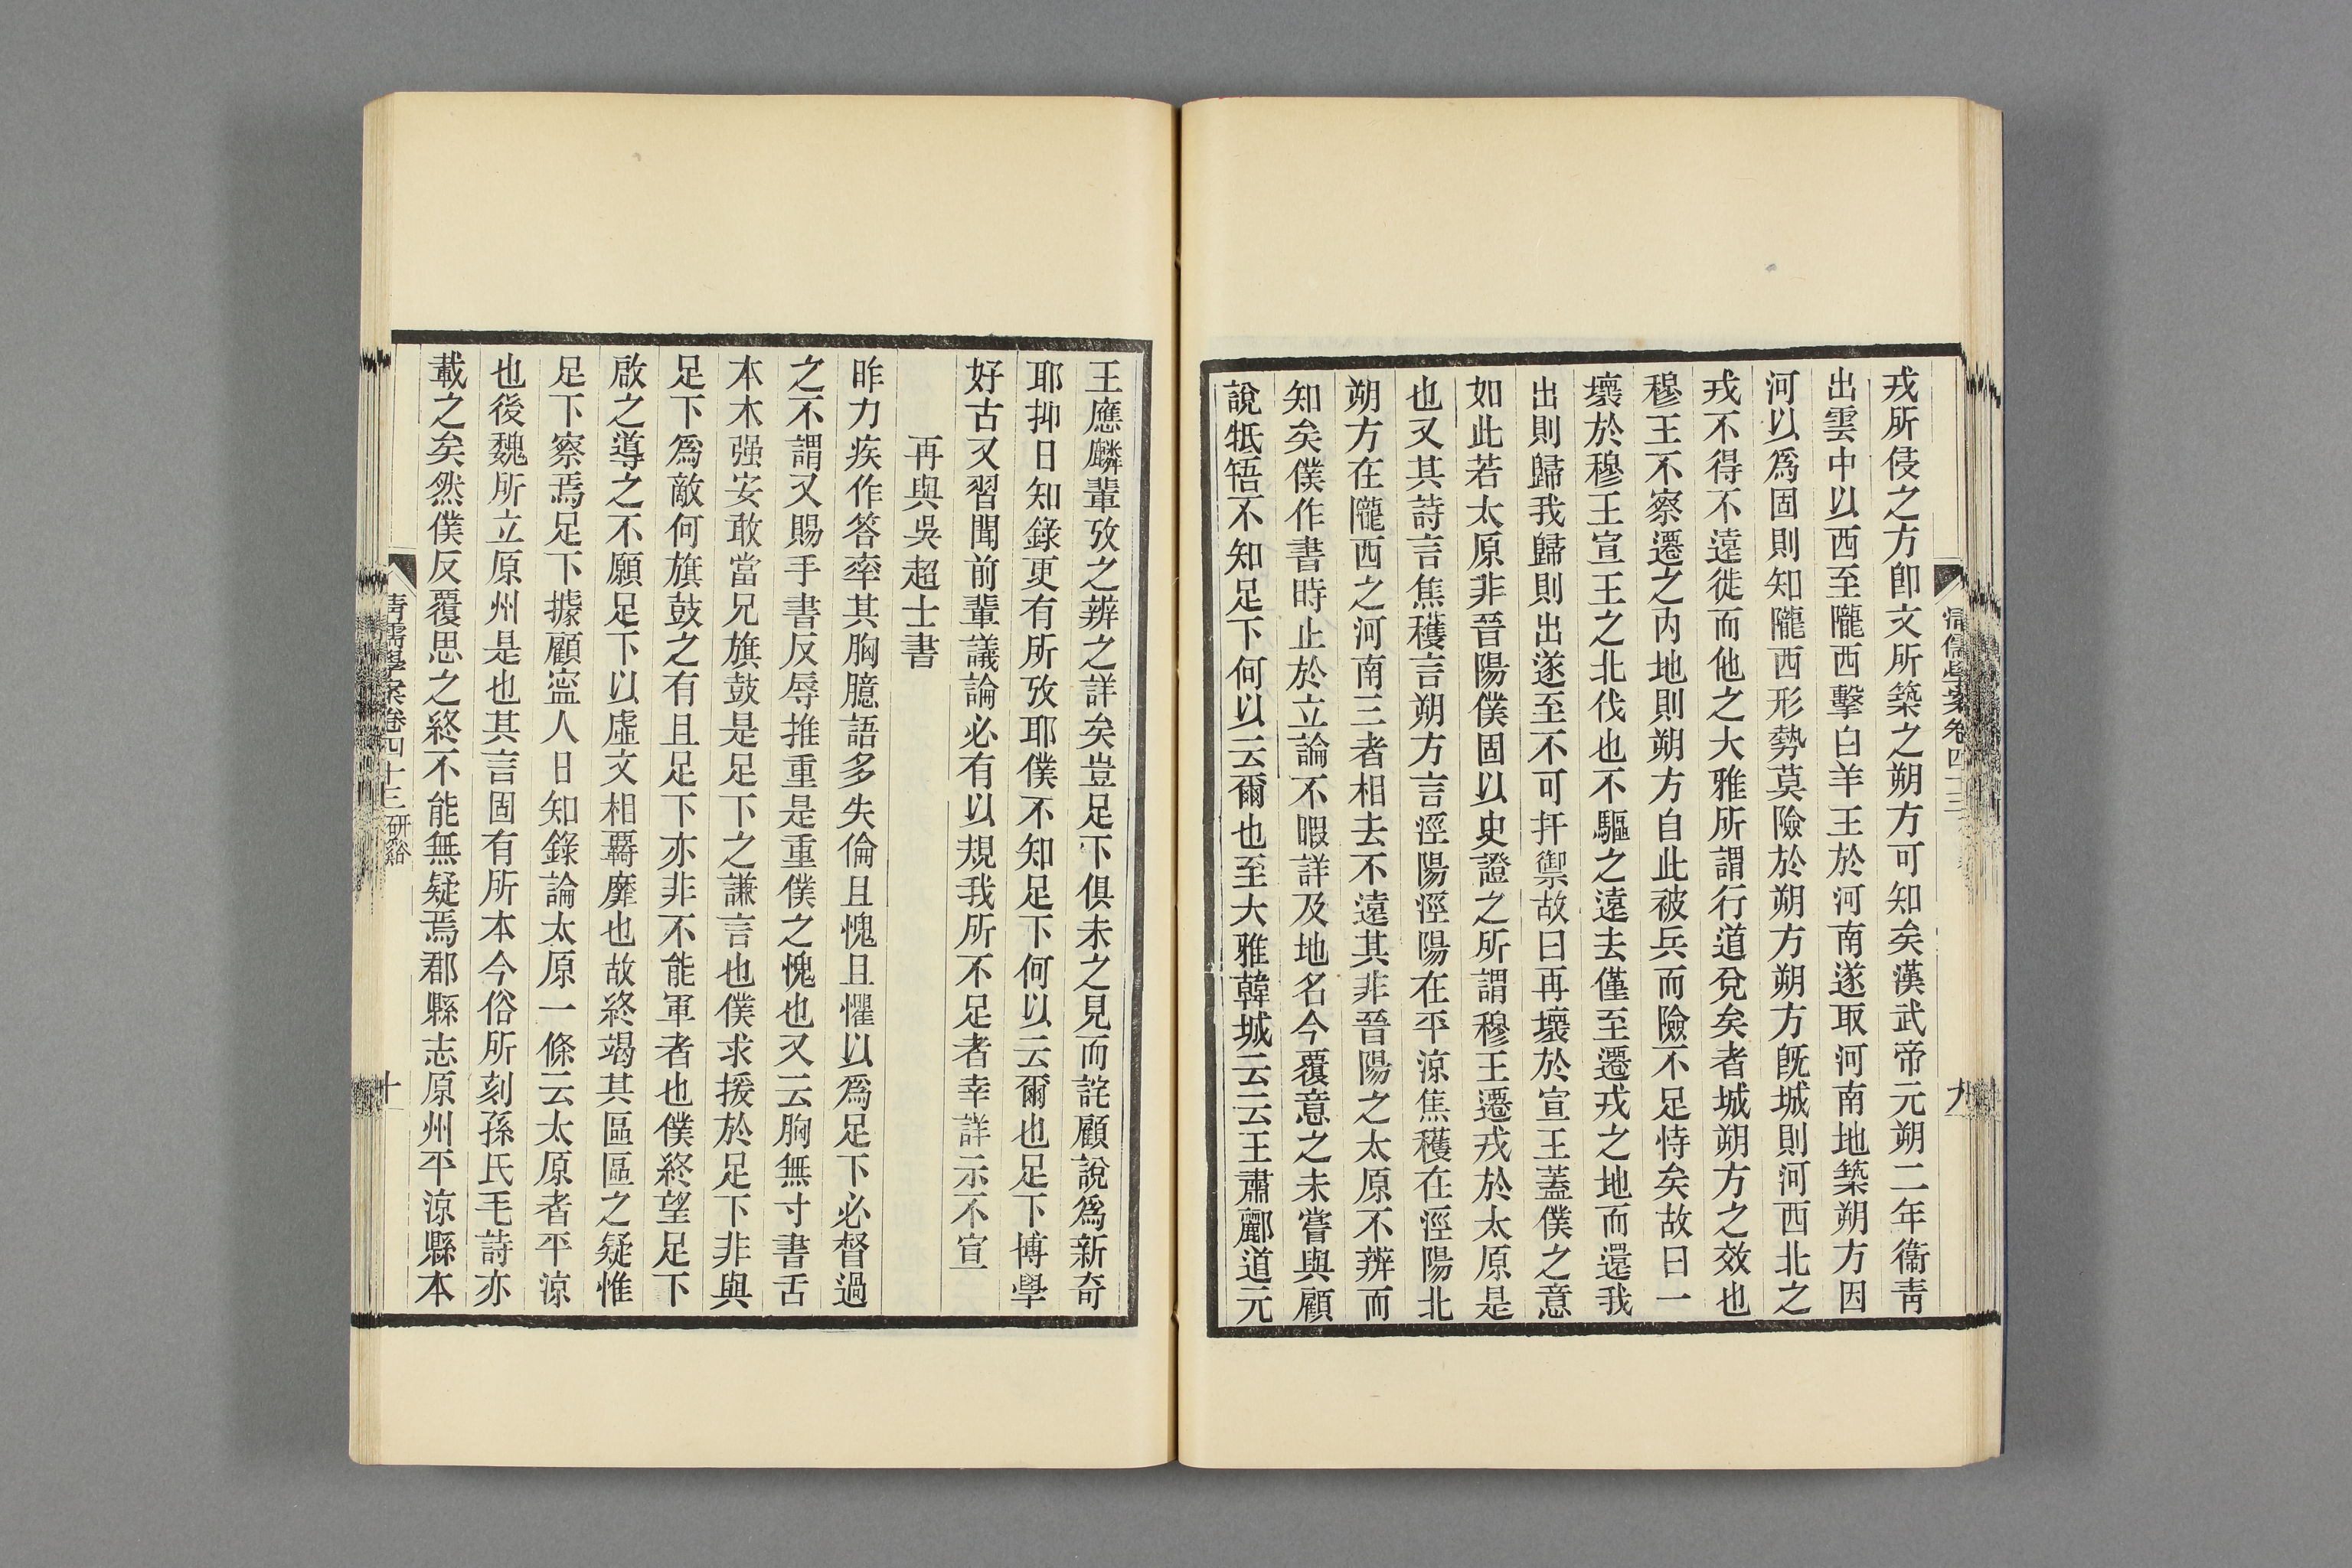 戎所侵之方卽文所築之朔方可知矣漢武帝元朔二年衞靑
出雲中以西至隴西擊白羊王於河南遂取河南地築朔方因
河以爲固則知隴西形勢莫險於朔方朔方旣城則河西北之
戎不得不遠徙而他之大雅所謂行道兌矣者城朔方之效也
穆王不察遷之內地則朔方自此被兵而險不足恃矣故曰一
壞於穆王宣王之北伐也不驅之遠去僅至遷戎之地而還我
出則歸我歸則出遂至不可扞禦故曰再壞於宣王蓋僕之意
如此若太原非晉陽僕固以史證之所謂穆王遷戎於太原是
也又其詩言焦穫言朔方言涇陽涇陽在平涼焦穫在涇陽北
朔方在隴西之河南三者相去不遠其非晉陽之太原不辨而
知矣僕作書時止於立論不暇詳及地名今覆意之未嘗與顧
說牴牾不知足下何以云爾也至大雅韓城云云王肅酈道元
清儒學案卷四十三
九
王應麟輩攷之辨之詳矣豈足下俱未之見而詫顧說爲新奇
耶抑日知錄更有所攷耶僕不知足下何以云爾也足下博學
好古又習聞前輩議論必有以規我所不足者幸詳示不宣
再與吳超士書
昨力疾作答率其胸臆語多失倫且愧且懼以爲足下必督過
之不謂又賜手書反辱推重是重僕之愧也又云胸無寸書舌
本木强安敢當兄旗鼓是足下之謙言也僕求援於足下非與
足下爲敵何旗鼓之有且足下亦非不能軍者也僕終望足下
啟之導之不願足下以虛文相覊靡也故終竭其區區之疑惟
足下察焉足下據顧寍人日知錄論太原一條云太原者平涼
也後魏所立原州是也其言固有所本今俗所刻孫氏毛詩亦
載之矣然僕反覆思之終不能無疑焉郡縣志原州平涼縣本
清儒學案卷四十三 研谿
十